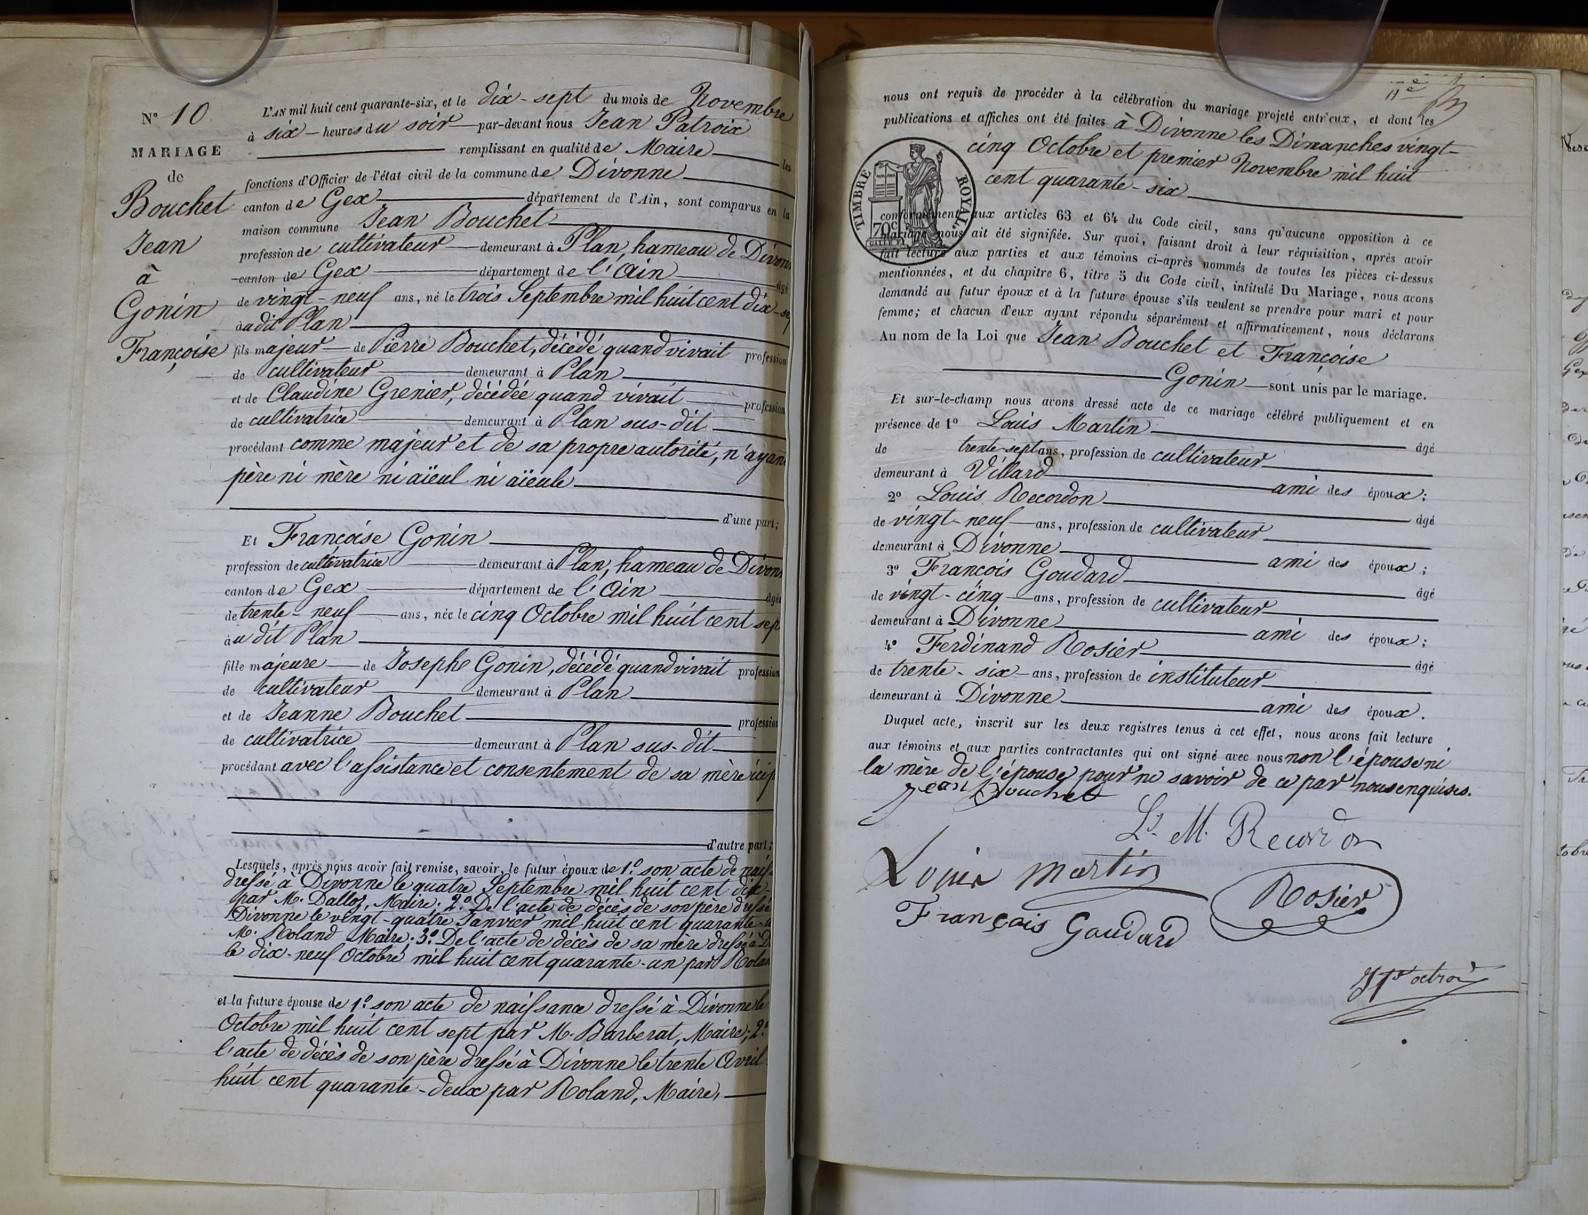 N° 10
MARIAGE
de
Bouchet
Jean
à
Gonin
Françoise
L'AN mil huit cent quarante-six, et le dix-sept du mois de Novembre
à six heures du soir par-devant nous Jean Patroix
remplissant en qualité de Maire les
fonctions d'Officier de l'état civil de la commune de Divonne
canton de Gex département de l'Ain, sont comparus en la
maison commune Jean Bouchet
profession de cultivateur demeurant à Plan, hameau de Divonn
canton de Gex département de l'Ain âgé
de vingt-neuf ans, né le trois Septembre mil huit cent dix-se
audit Plan
fils majeur de Pierre Bouchet, décédé quand vivait profession
de cultivateur demeurant à Plan
et de Claudine Grenier, décédée quand vivait profession
de cultivatrice demeurant à Plan sus-dit
procédant comme majeur et de sa propre autorité, n'ayan
père ni mère ni aïeul ni aïeule
d'une part;
Et Françoise Gonin
profession de cultivatrice demeurant à Plan, hameau de Divon
canton de Gex département de l'Ain âgée
de trente-neuf ans, née le cinq Octobre mil huit cent sep
au dit Plan
fille majeure de Joseph Gonin, décédé quand vivait profession
de cultivateur demeurant à Plan
et de Jeanne Bouchet profession
de cultivatrice demeurant à Plan sus-dit
procédant avec l'assistance et consentement de sa mère ici p
d'autre part;
Lesquels, après nous avoir fait remise, savoir, le futur époux de 1º son acte de naiss
dressé à Divonne le quatre Septembre mil huit cent dix-
par M. Dalloz, Maire; 2º De l'acte de décès de son père dressé
Divonne le vingt-quatre Janvier mil huit cent quarante-
M. Roland Maire; 3º De l'acte de décès de sa mère dressé à D
le dix-neuf Octobre mil huit cent quarante-un par Rolan
et la future épouse de 1º son acte de naissance dressé à Divonne le
Octobre mil huit cent sept par M. Barberat, Maire; 2º
l'acte de décès de son père dressé à Divonne le trente Avril
huit cent quarante-deux par Roland, Maire,
11e
nous ont requis de procéder à la célébration du mariage projeté entr'eux, et dont les
publications et affiches ont été faites à Divonne les Dimanches vingt-
cinq Octobre et premier Novembre mil huit
cent quarante-six
TIMBRE ROYAL.
70c
conformément aux articles 63 et 64 du Code civil, sans qu'aucune opposition à ce
mariage nous ait été signifiée. Sur quoi, faisant droit à leur réquisition, après avoir
fait lecture aux parties et aux témoins ci-après nommés de toutes les pièces ci-dessus
mentionnées, et du chapitre 6, titre 5 du Code civil, intitulé Du Mariage, nous avons
demandé au futur époux et à la future épouse s'ils veulent se prendre pour mari et pour
femme; et chacun d'eux ayant répondu séparément et affirmaticement, nous déclarons
Au nom de la Loi que Jean Bouchet et Françoise
Gonin sont unis par le mariage.
Et sur-le-champ nous avons dressé acte de ce mariage célébré publiquement et en
présence de 1º Louis Martin âgé
de trente-sept ans, profession de cultivateur
demeurant à Villard ami des époux;
2º Louis Recordon âgé
de vingt-neuf ans, profession de cultivateur
demeurant à Divonne ami des époux;
3º François Goudard âgé
de vingt-cinq ans, profession de cultivateur
demeurant à Divonne ami des époux;
4º Ferdinand Rosier âgé
de trente-six ans, profession de instituteur
demeurant à Divonne ami des époux.
Duquel acte, inscrit sur les deux registres tenus à cet effet, nous avons fait lecture
aux témoins et aux parties contractantes qui ont signé avec nous non l'épouse ni
la mère de l'épouse pour ne savoir de ce par nous enquises.
Jean Bouchet
Ls. M. Recordon
Louis Martin
Rosier
François Goudard